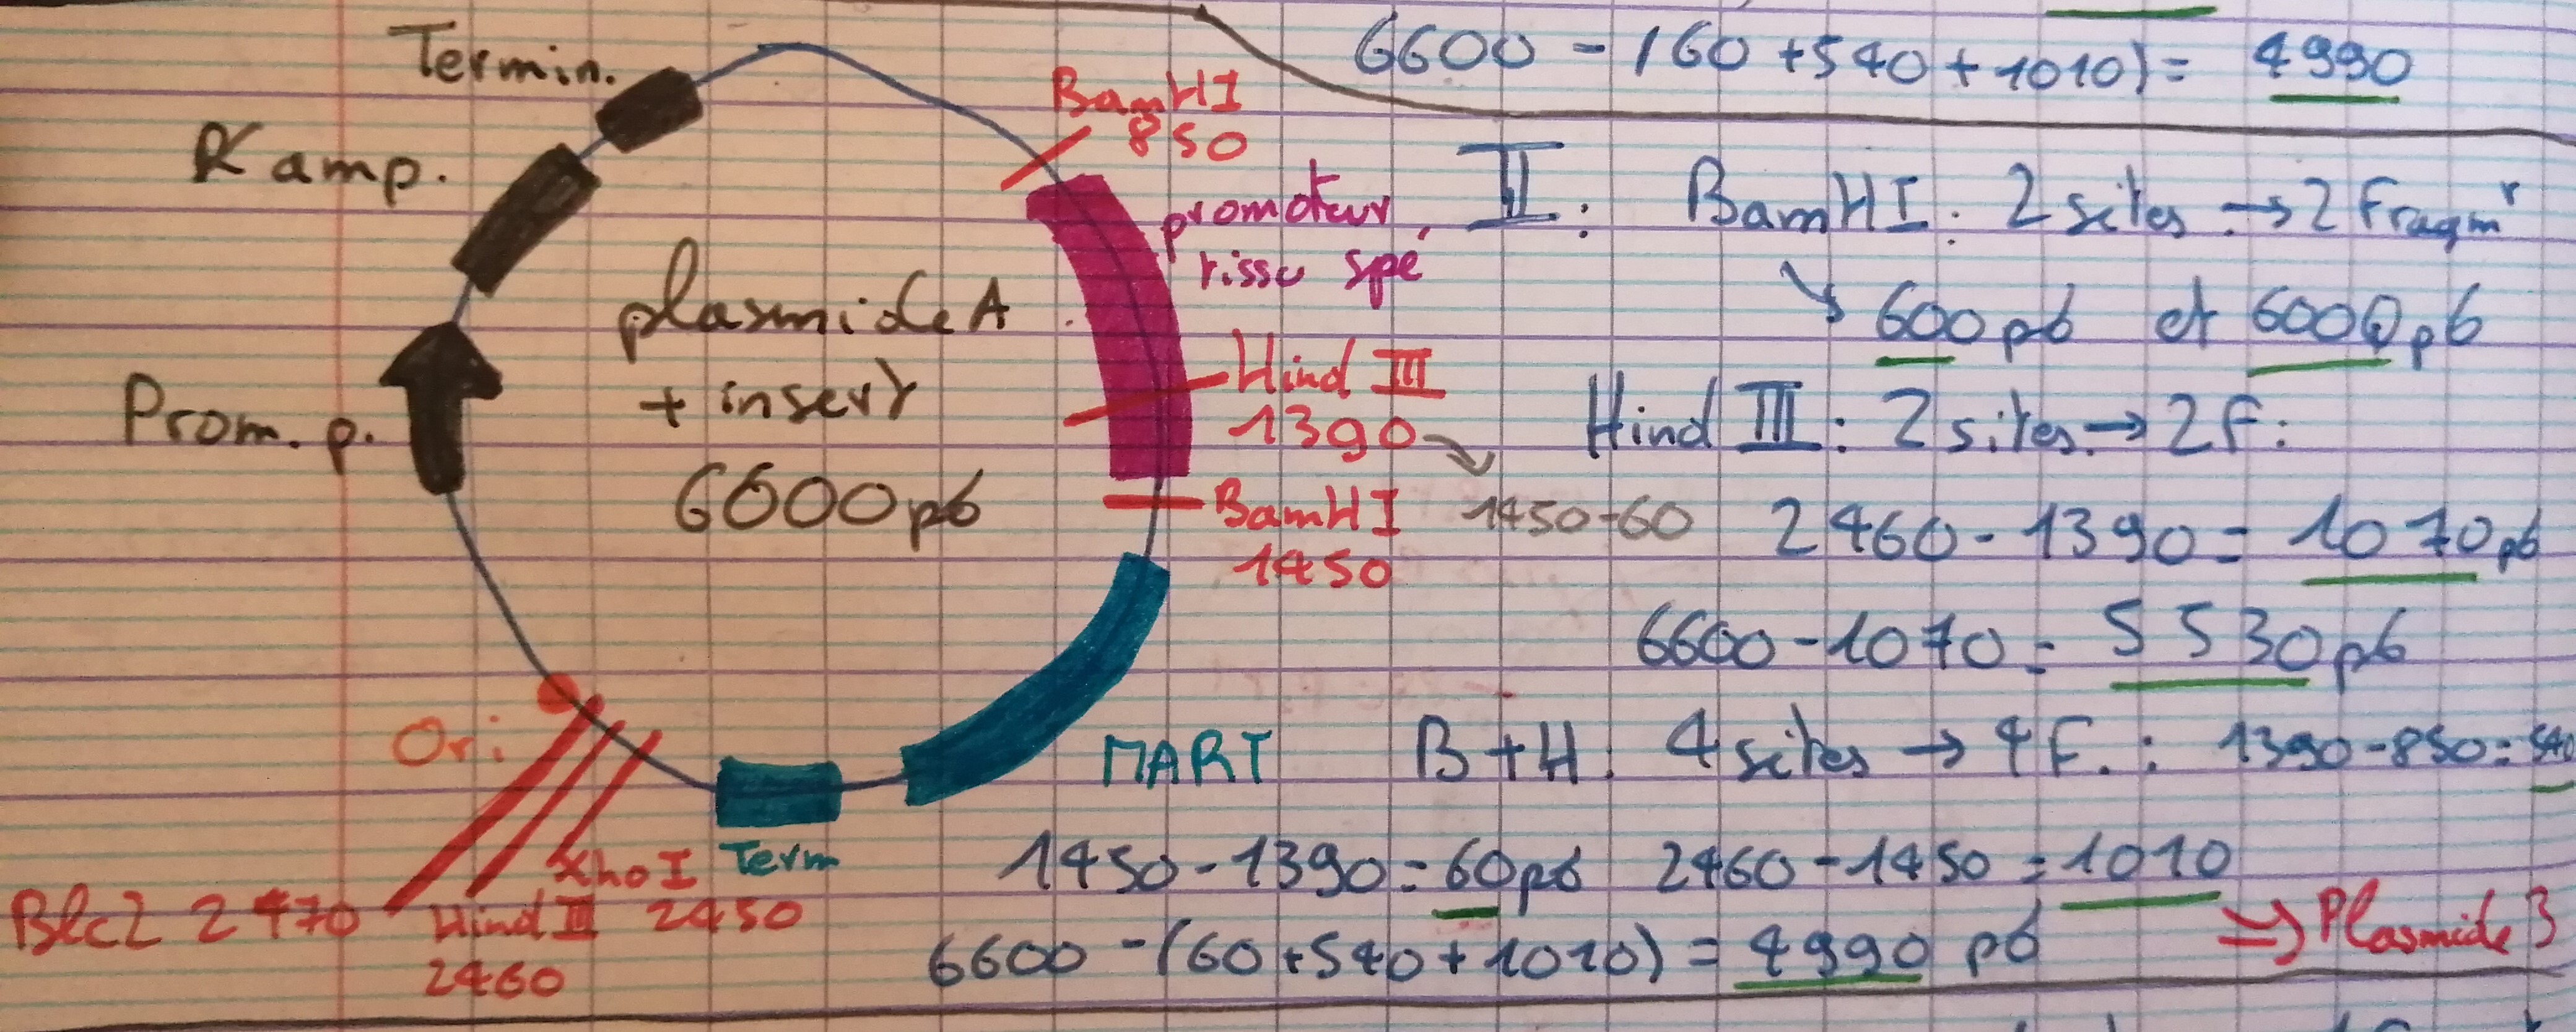 6600 - (60 + 540 + 1010) = 4990
Termin.
R amp.
Prom. p.
plasmide A
+ insert
6600 pb
BamHI
850
promoteur
tissu spé
Hind III
1390
1450-60
BamHI
1450
MART
Term
Ori
XhoI
2450
Hind III
2460
Blc2 2470
II : BamHI : 2 sites → 2 Fragmt
↘ 600 pb et 6000 pb
Hind III : 2 sites → 2F :
2460 - 1390 = 1070 pb
6600 - 1070 = 5530 pb
B + H : 4 sites → 4 F. : 1390 - 850 = 540
1450 - 1390 = 60 pb 2460 - 1450 = 1010
6600 - (60 + 540 + 1010) = 4990 pb
⇒ Plasmide 3